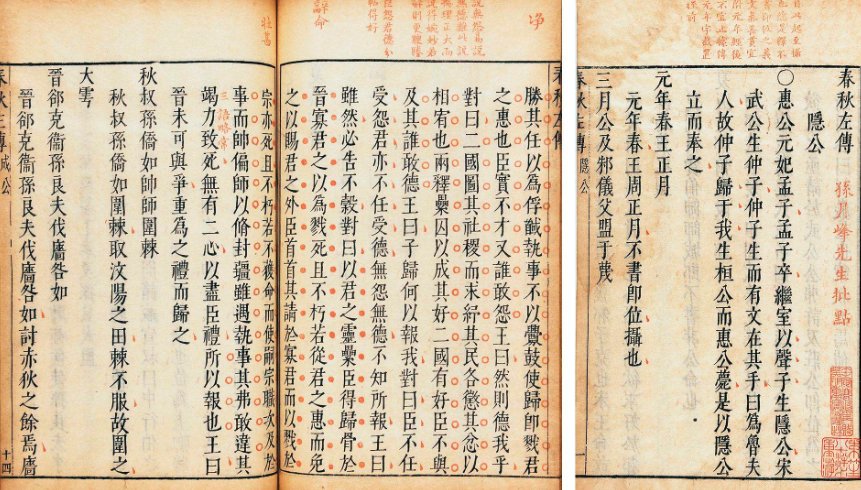 春秋左傳 孫月峰先生批點
隱公
○惠公元妃孟子孟子卒繼室以聲子生隱公宋
武公生仲子仲子生而有文在其手曰爲魯夫
人故仲子歸于我生桓公而惠公薨是以隱公
立而奉之
元年春王正月
元年春王周正月不書卽位攝也
三月公及邾儀父盟于蔑
春秋左傳 隱公
春秋左傳
勝其任以爲俘馘執事不以釁鼓使歸卽戮君
之惠也臣實不才又誰敢怨王曰然則德我乎
對曰二國圖其社稷而求紓其民各懲其忿以
相宥也兩釋纍囚以成其好二國有好臣不與
及其誰敢德王曰子歸何以報我對曰臣不任
受怨君亦不任受德無怨無德不知所報王曰
雖然必告不穀對曰以君之靈纍臣得歸骨於
晉寡君之以爲戮死且不朽若從君之惠而免
之以賜君之外臣首首其請於寡君而以戮於
宗亦死且不朽若不獲命而使嗣宗職次及於
事而帥偏師以脩封疆雖遇執事其弗敢違其
竭力致死無有二心以盡臣禮所以報也王曰
晉未可與爭重爲之禮而歸之
秋叔孫僑如帥師圍棘
秋叔孫僑如圍棘取汶陽之田棘不服故圍之
大雩
晉郤克衞孫良夫伐廧咎如
晉郤克衞孫良夫伐廧咎如討赤狄之餘焉廧
春秋左傳 成公 十四
淨
壯甚